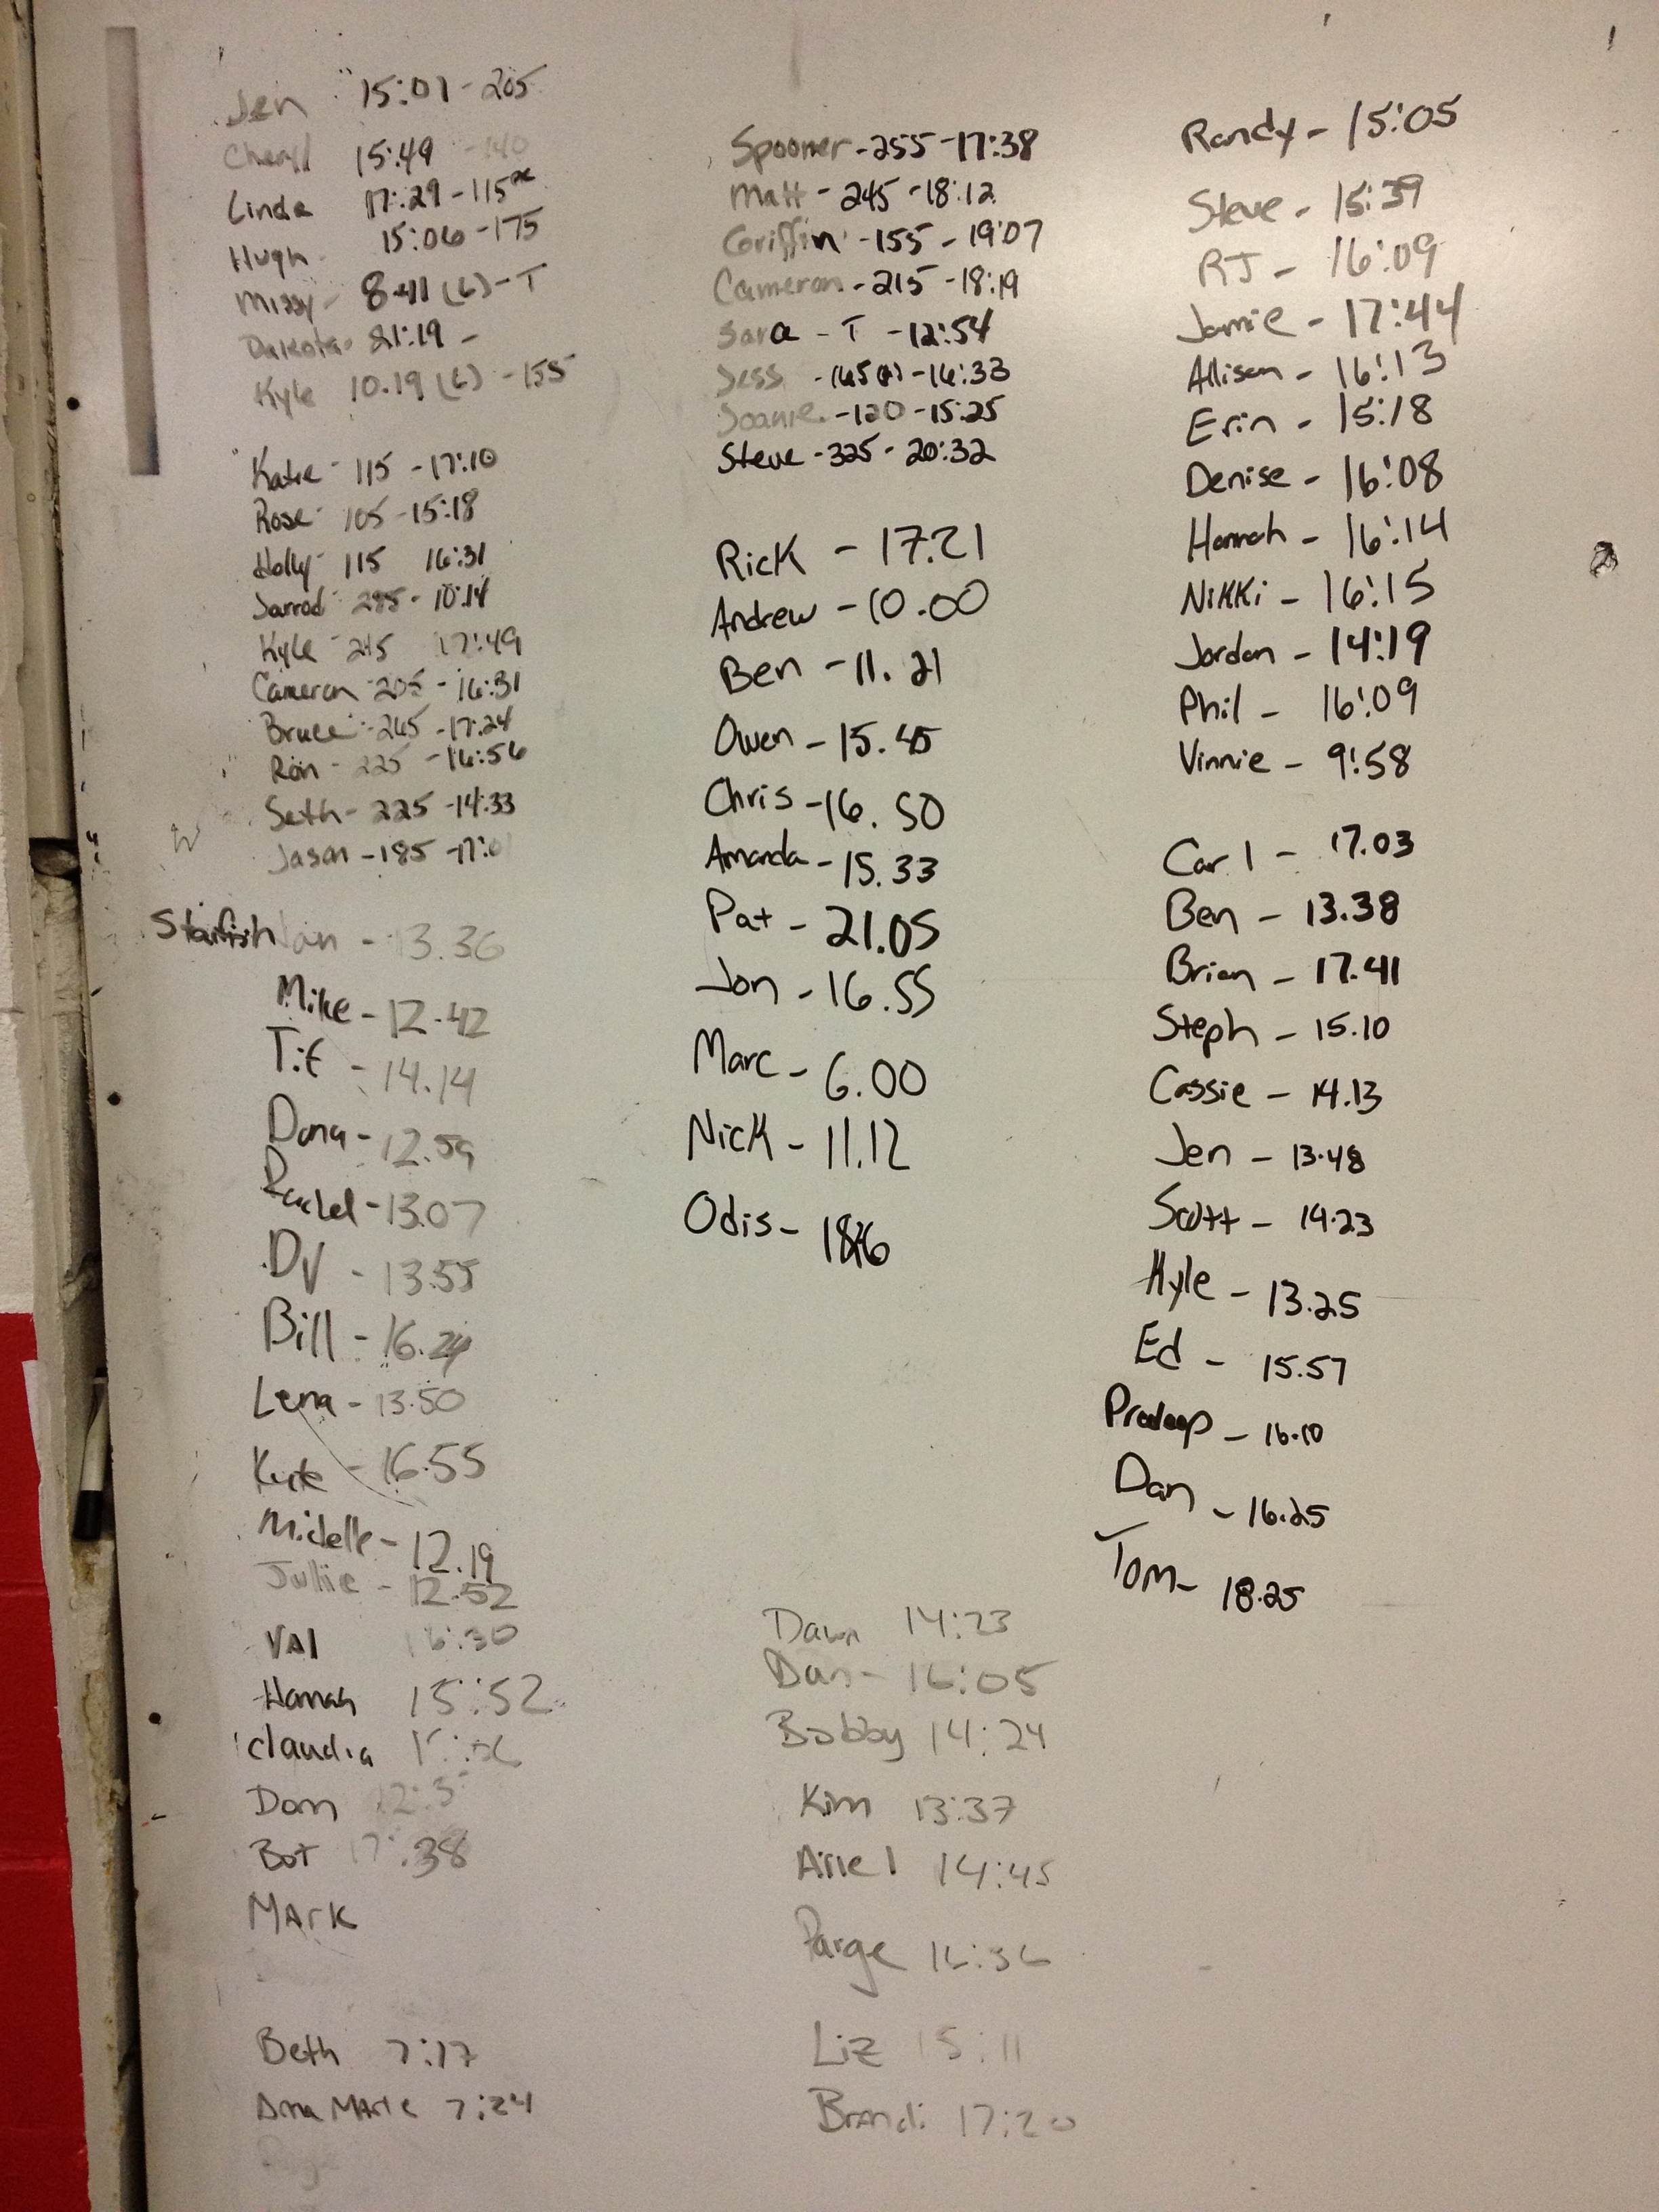 Jen 15:01-205
Cheryl 15:49 -140
Linda 17:29-115
Hugh 15:06-175
Missy- 8:41 (L)-T
Dakota- 21:19 -
Kyle 10.19 (L) -155
Katie- 115 -17:10
Rose- 105 -15:18
Holly- 115 16:31
Jarrod- 285- 10:14
Kyle- 245 17:49
Cameron-205 -16:31
Bruce-265 -17:24
Ron - 225 -16:56
Seth- 225 -14:33
Jason -185 -17:0
Starfish - 13.36
Mike- 12.42
- 14.14
Dana- 12.59
Rachel-13.07
DV - 13.55
Bill - 16.24
Lena - 13.50
- 16.55
Michelle- 12.19
Jullie - 12.52
VAl 16:30
Hannah 15:52
Claudia
Dom
Bot 17:38
MArk
Beth 7:17
Anna MArie 7:24
Spooner-255-17:38
Matt - 245 -18:12
Griffin -155 - 19:07
Cameron - 215 -18:19
Sara - T -12:54
Jess -165 -16:33
Joanie -120 -15:25
Steve -325- 20:32
Rick - 17.21
Andrew -10.00
Ben -11.21
Owen - 15.45
Chris -16.50
Amanda - 15.33
Pat - 21.05
Jon - 16.55
Marc - 6.00
Nick - 11.12
Odis-
Dawn 14:23
Dan- 16:05
Bobby 14:24
Kim 13:37
Ariel 14:45
Paige 16:36
Liz 15:11
Brandi 17:20
Randy - 15:05
Steve - 15:39
RJ - 16:09
Jamie - 17:44
Allison - 16:13
Erin - 15:18
Denise - 16:08
Hannah - 16:14
Nikki - 16:15
Jordan - 14:19
Phil - 16:09
Vinnie - 9:58
Carl - 17.03
Ben - 13.38
Brian - 17.41
Steph - 15.10
Cassie - 14.13
Jen - 13.48
Scott - 14.23
Kyle - 13.25
Ed - 15.57
Pradeep - 16.10
Dan - 16.25
Tom- 18.25